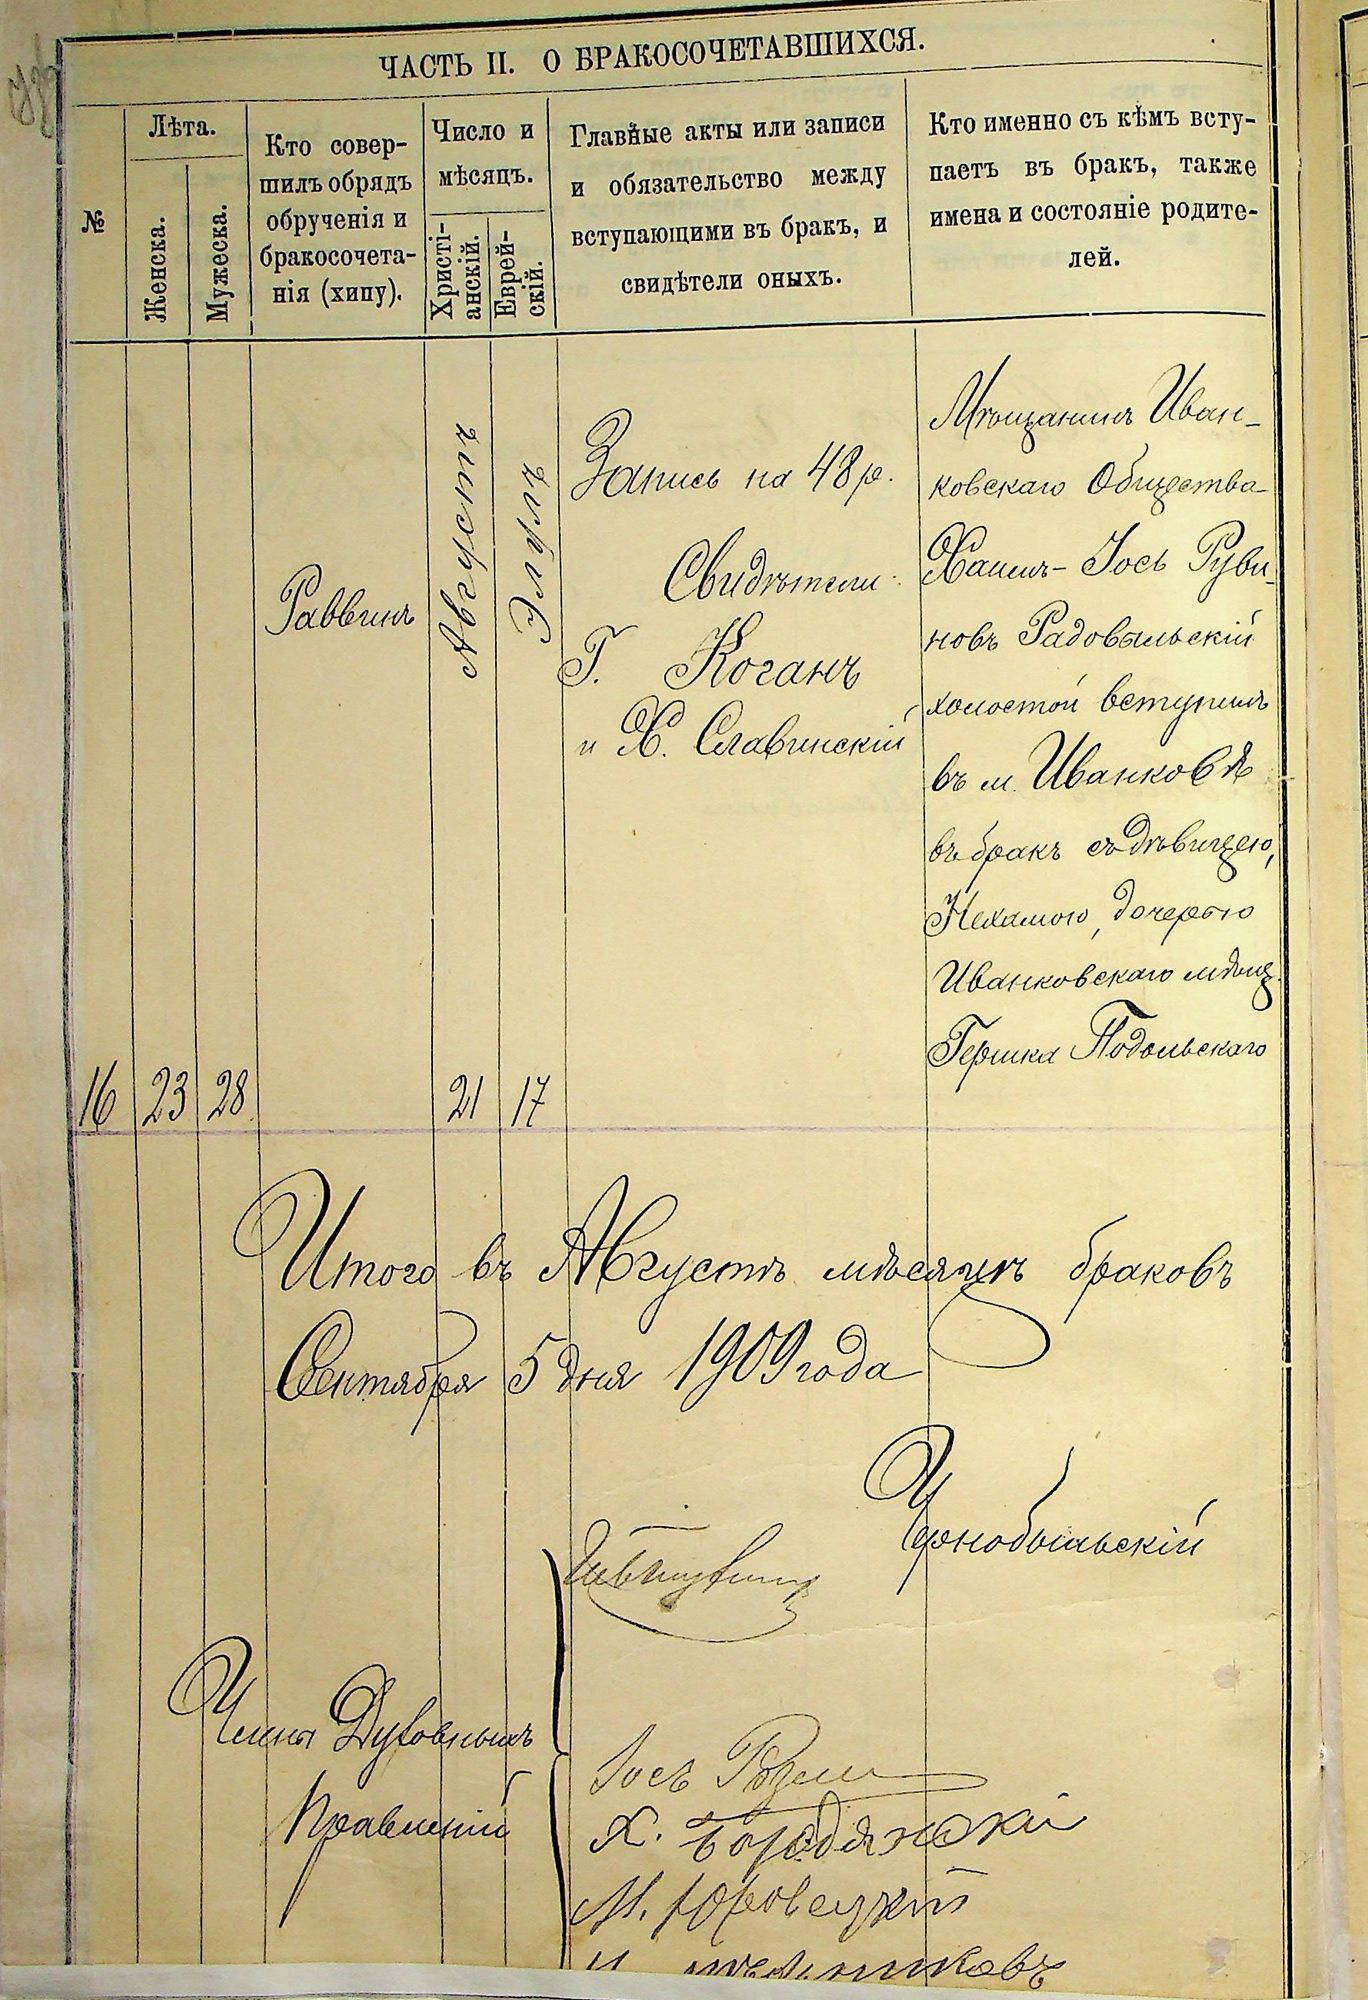 ЧАСТЬ II. О БРАКОСОЧЕТАВШИХСЯ.
№
Лѣта.
Женска.
Мужеска.
Кто совер-
шилъ обрядъ
обрученія и
бракосочета-
нія (хипу).
Число и
мѣсяцъ.
Христі-
анскій.
Еврей-
скій.
Главные акты или записи
и обязательство между
вступающими въ бракъ, и
свидѣтели оныхъ.
Кто именно съ кѣмъ всту-
паетъ въ бракъ, также
имена и состояніе родите-
лей.
16
23
28
Раввинъ
Августъ
21
Элулъ
17
Запись на 48 р.
Свидѣтели:
Г. Коганъ
и Х. Славинскій
Мѣщанинъ Иван-
ковскаго Общества
Хаимъ-Іось Руви-
новъ Радовильскій
холостой вступилъ
въ м. Иванковѣ
въ бракъ съ дѣвицею,
Нехамою, дочерью
Иванковскаго мѣщ.
Гершка Подольскаго
Итого въ Августѣ мѣсяцѣ браковъ
Сентября 5 дня 1909 года
Чернобыльскій
Члены Духовныхъ
Правленій
Іось
Х. Бородянскій
М. Юровецкій